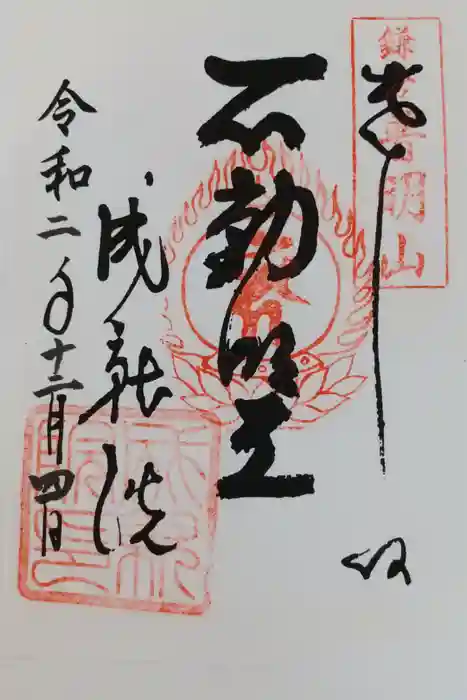 奉拝
鎌倉普明山
不動明王
成就院
令和二年十二月四日